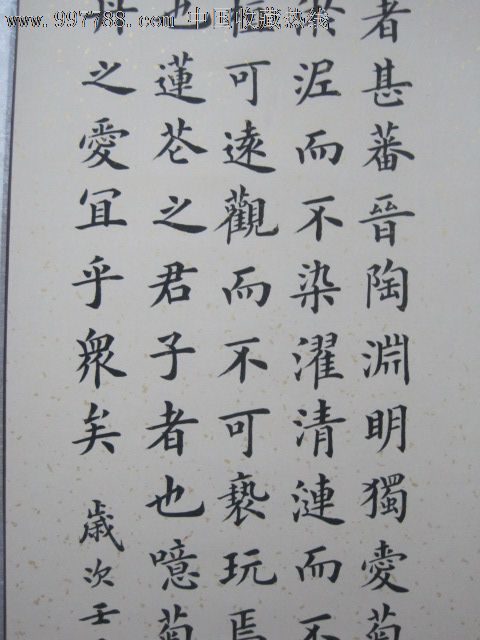 www.997788.com 中国收藏热线
者甚蕃晉陶淵明獨愛菊
淤泥而不染濯清漣而不
植可遠觀而不可褻玩焉
也蓮花之君子者也噫菊
丹之愛冝乎眾矣
歲次壬